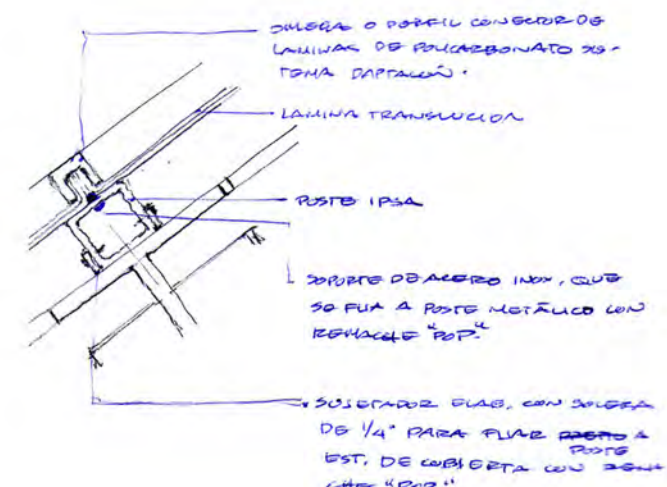 O PERFIL CONECTOR DE
LAMINAS DE POLICARBONATO SIS-
TEMA
LAMINA TRANSLUCIDA
POSTE IPSA
SOPORTE DE ACERO INOX, QUE
SE FIJA A POSTE METÁLICO CON
REMACHE "POP"
SUJETADOR ELAB. CON SOLERA
DE 1/4" PARA FIJAR A
POSTE
EST. DE CUBIERTA CON REMA
CHE "POP"